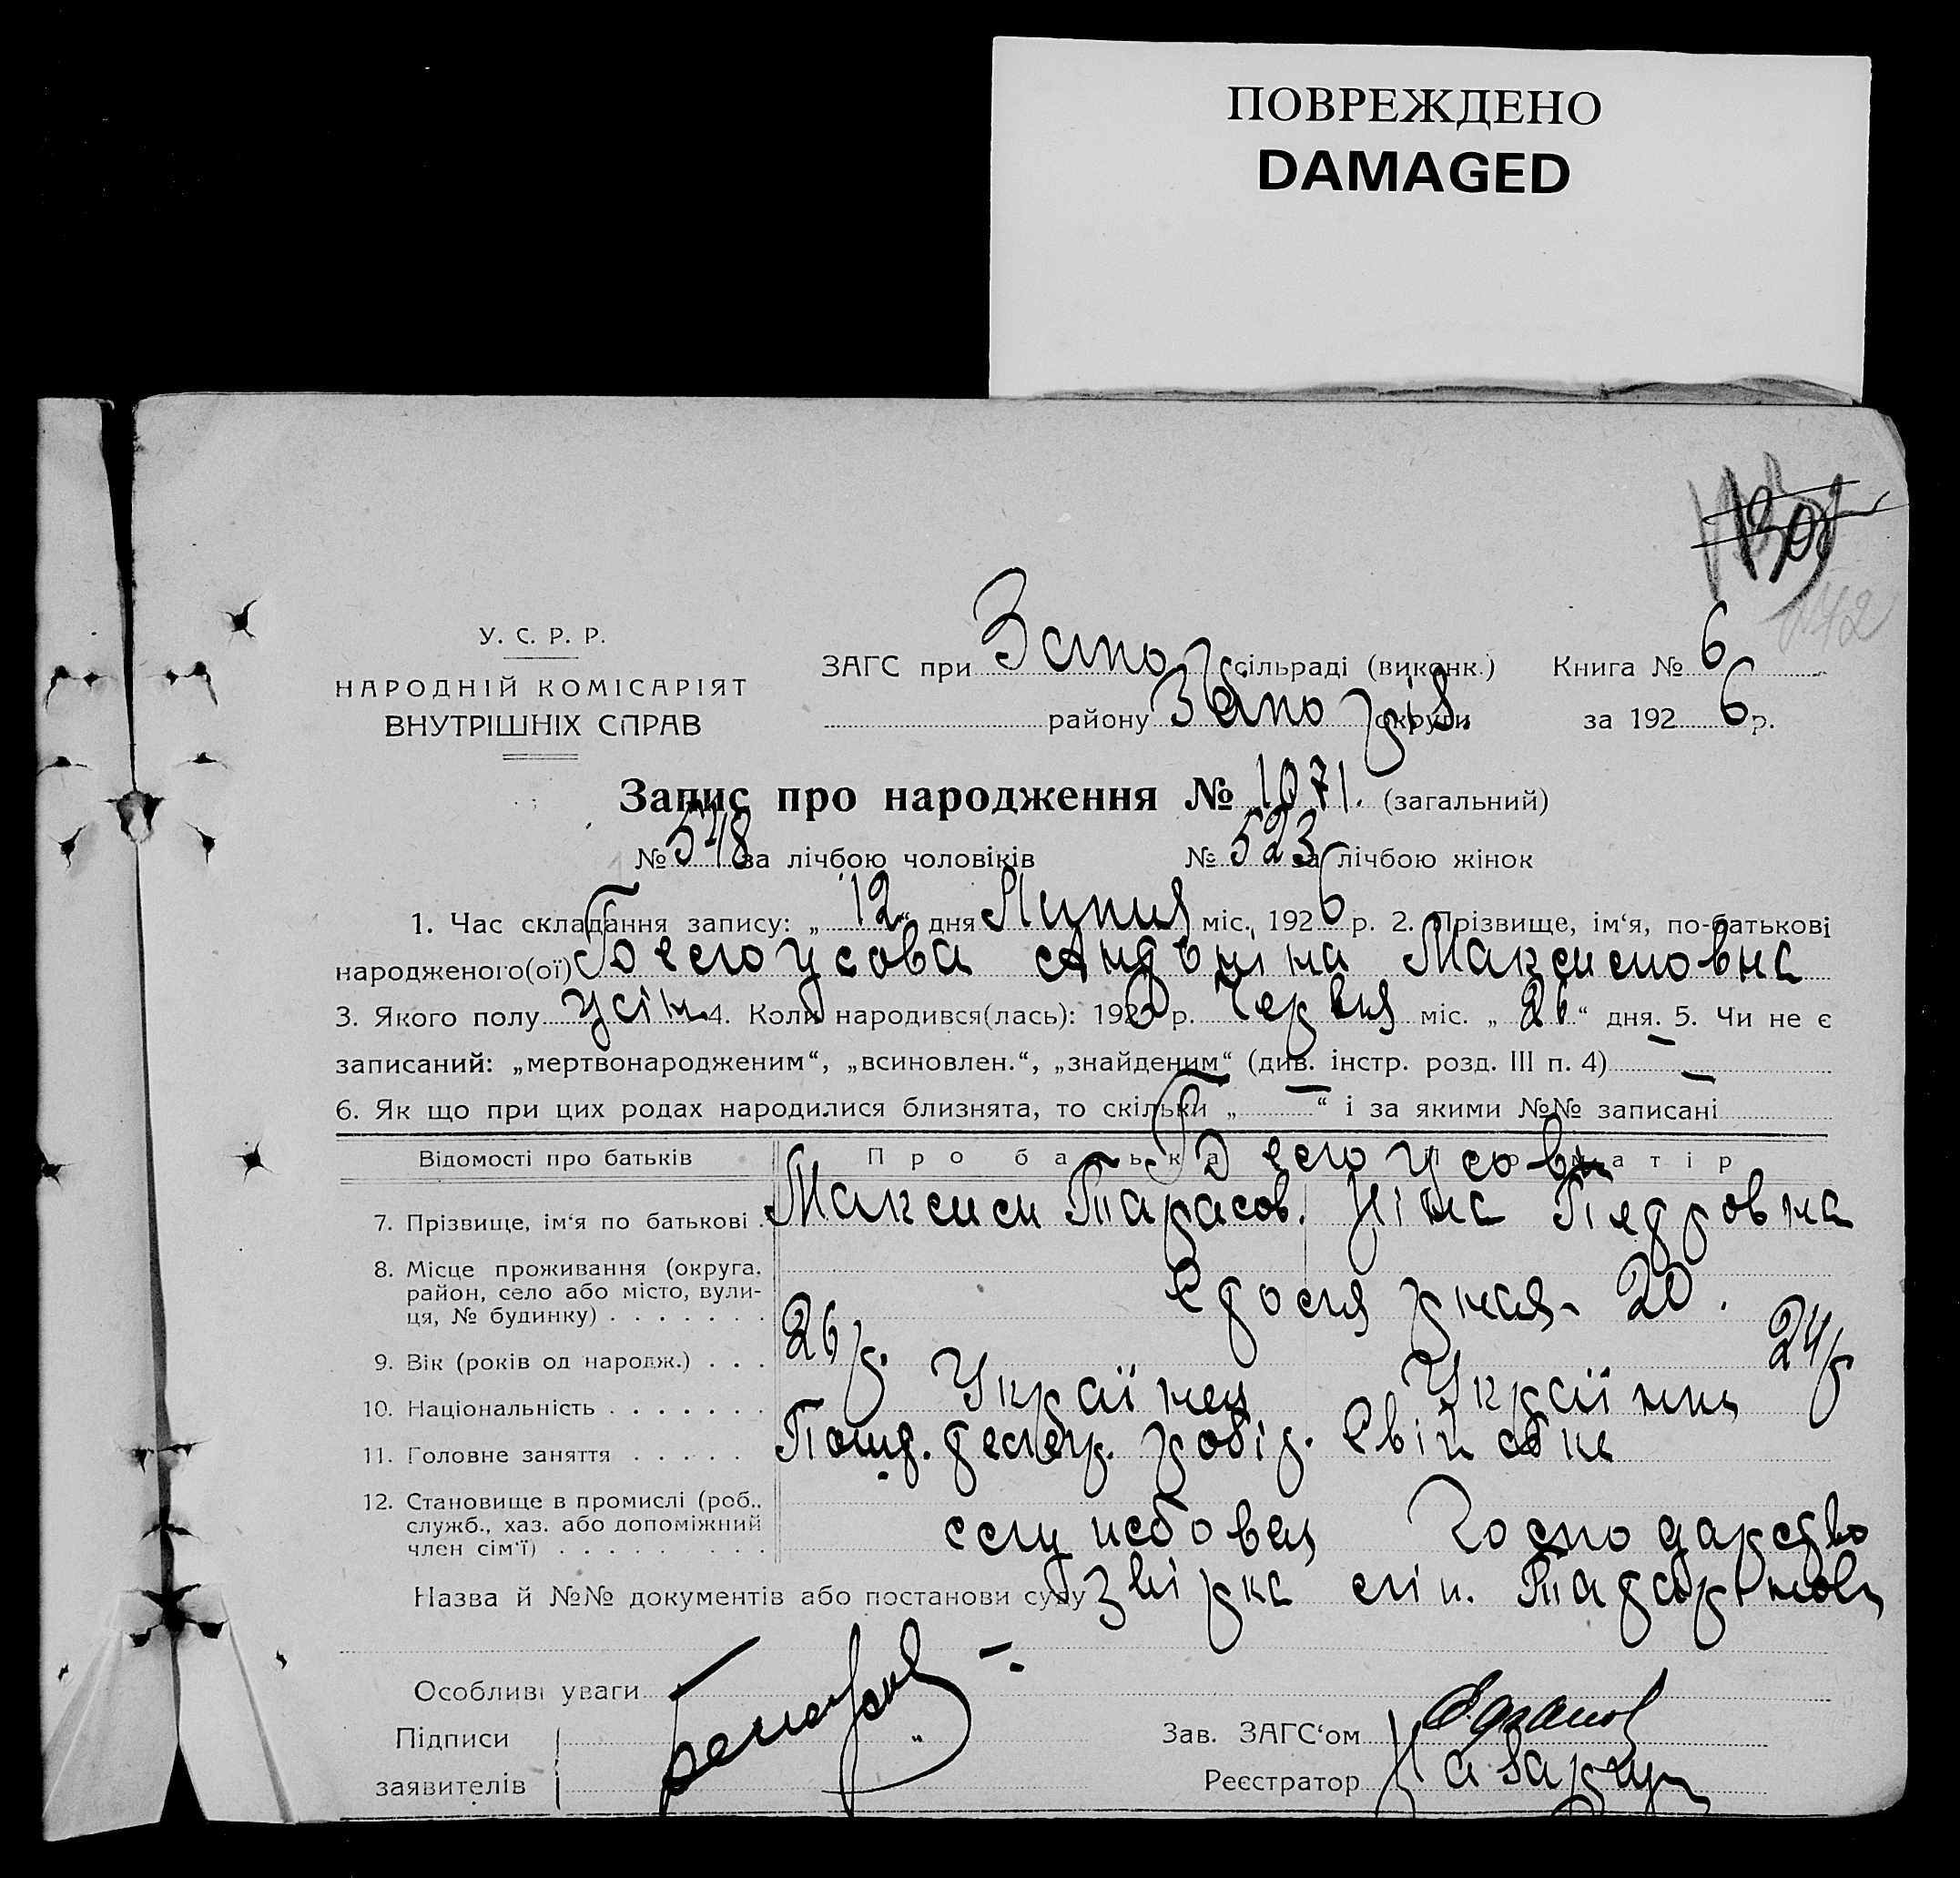 ПОВРЕЖДЕНО
DAMAGED
142
У. С. Р. Р.
НАРОДНІЙ КОМІСАРІЯТ
ВНУТРІШНІХ СПРАВ
ЗАГС при Запор сільраді (виконк.) Книга № 6
району Запоріз. округи за 1926 р.
Запис про народження № 1071. (загальний)
№ 548 за лічбою чоловіків № 523 за лічбою жінок
1. Час складання запису: „12“ дня Липня міс. 1926 р. 2. Прізвище, ім‘я, по-батькові
народженого(ої) Белоусова Антоніна Максимовна
3. Якого полу жін. 4. Коли народився(лась): 1926 р. Червня міс. „26“ дня. 5. Чи не є
записаний: „мертвонародженим“, „всиновлен.“, „знайденим“ (див. інстр. розд. III п. 4) —
6. Як що при цих родах народилися близнята, то скільки „—“ і за якими №№ записані —
Відомості про батьків Про батька Про матір
Белоусови
7. Прізвище, ім‘я по батькові . Максим Тарасов. Ніна Петровна
8. Місце проживання (округа, район, село або місто, вулиця, № будинку) . . . . . . . 20.
9. Вік (років од народж.) . . . 26 р. 24 р
10. Національність . . . . . . . Українец Українка
11. Головне заняття . . . . . Пошт. телегр. робід. Свійське
12. Становище в промислі (роб., служб., хаз. або допоміжний член сім‘ї) . . . . . . . . служебовец Господарство
Назва й №№ документів або постанови суду
Особливі уваги —
Підписи
заявителів
Зав. ЗАГС‘ом
Реєстратор